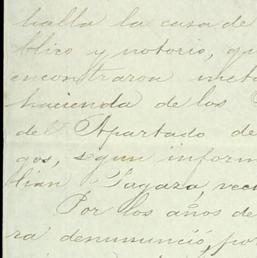 halla la casa de
blico y notorio, qu
encontraron meta
hacienda de los
del Apartado de
gos, segun inform
lian Sagaza, veci
Por los años de
ra denumunció, por